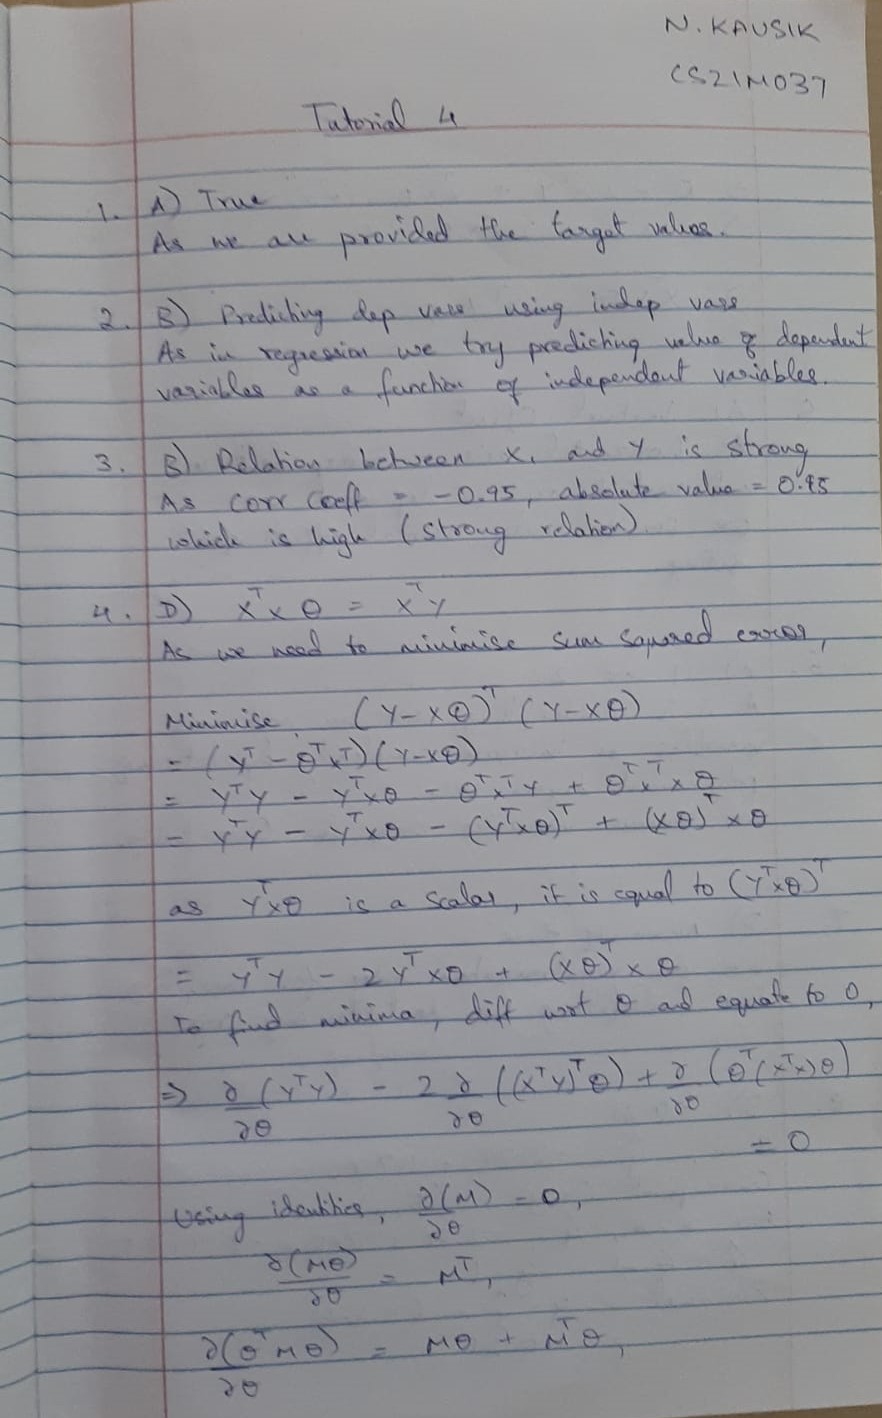 N. KAUSIK
CS21M037
Tutorial 4
1. A) True
As we are provided the target values.
2. B) Predicting dep vars using indep vars
As in regression we try predicting value of dependent
variables as a function of independent variables.
3. B) Relation between X₁ and Y is strong
As corr coeff = -0.95, absolute value = 0.95
which is high (strong relation)
4. D) XᵀXθ = XᵀY
As we need to minimise sum squared error,
Minimise (Y-Xθ)ᵀ (Y-Xθ)
= (Yᵀ - θᵀXᵀ)(Y-Xθ)
= YᵀY - YᵀXθ - θᵀXᵀY + θᵀXᵀXθ
= YᵀY - YᵀXθ - (YᵀXθ)ᵀ + (Xθ)ᵀXθ
as YᵀXθ is a scalar, it is equal to (YᵀXθ)ᵀ
= YᵀY - 2YᵀXθ + (Xθ)ᵀXθ
To find minima, diff wrt θ ad equate to 0,
⇒ ∂/∂θ (YᵀY) - 2 ∂/∂θ ((XᵀY)ᵀθ) + ∂/∂θ (θᵀ(XᵀX)θ)
= 0
Using identities, ∂(M)/∂θ = 0,
∂(Mθ)/∂θ = Mᵀ,
∂(θᵀMθ)/∂θ = Mθ + Mᵀθ,